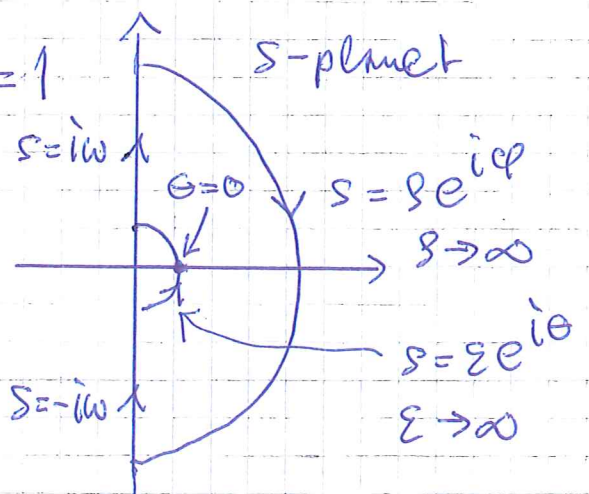 = 1
s-planet
s=iω
θ=0
s = ρe^{iφ}
ρ→∞
s = εe^{iθ}
s=-iω
ε→∞